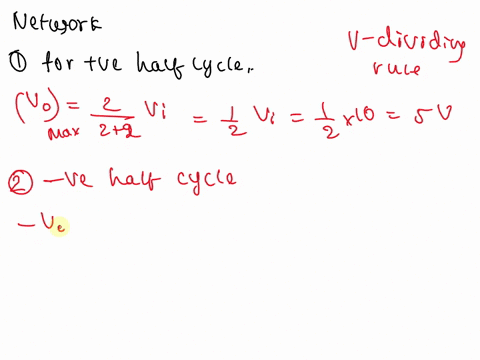 Network
① for +ve half cycle,.
V-dividing rule
(Vo)max = 2/(2+2) Vi = 1/2 Vi = 1/2 × 10 = 5 V
② -ve half cycle
- Vo